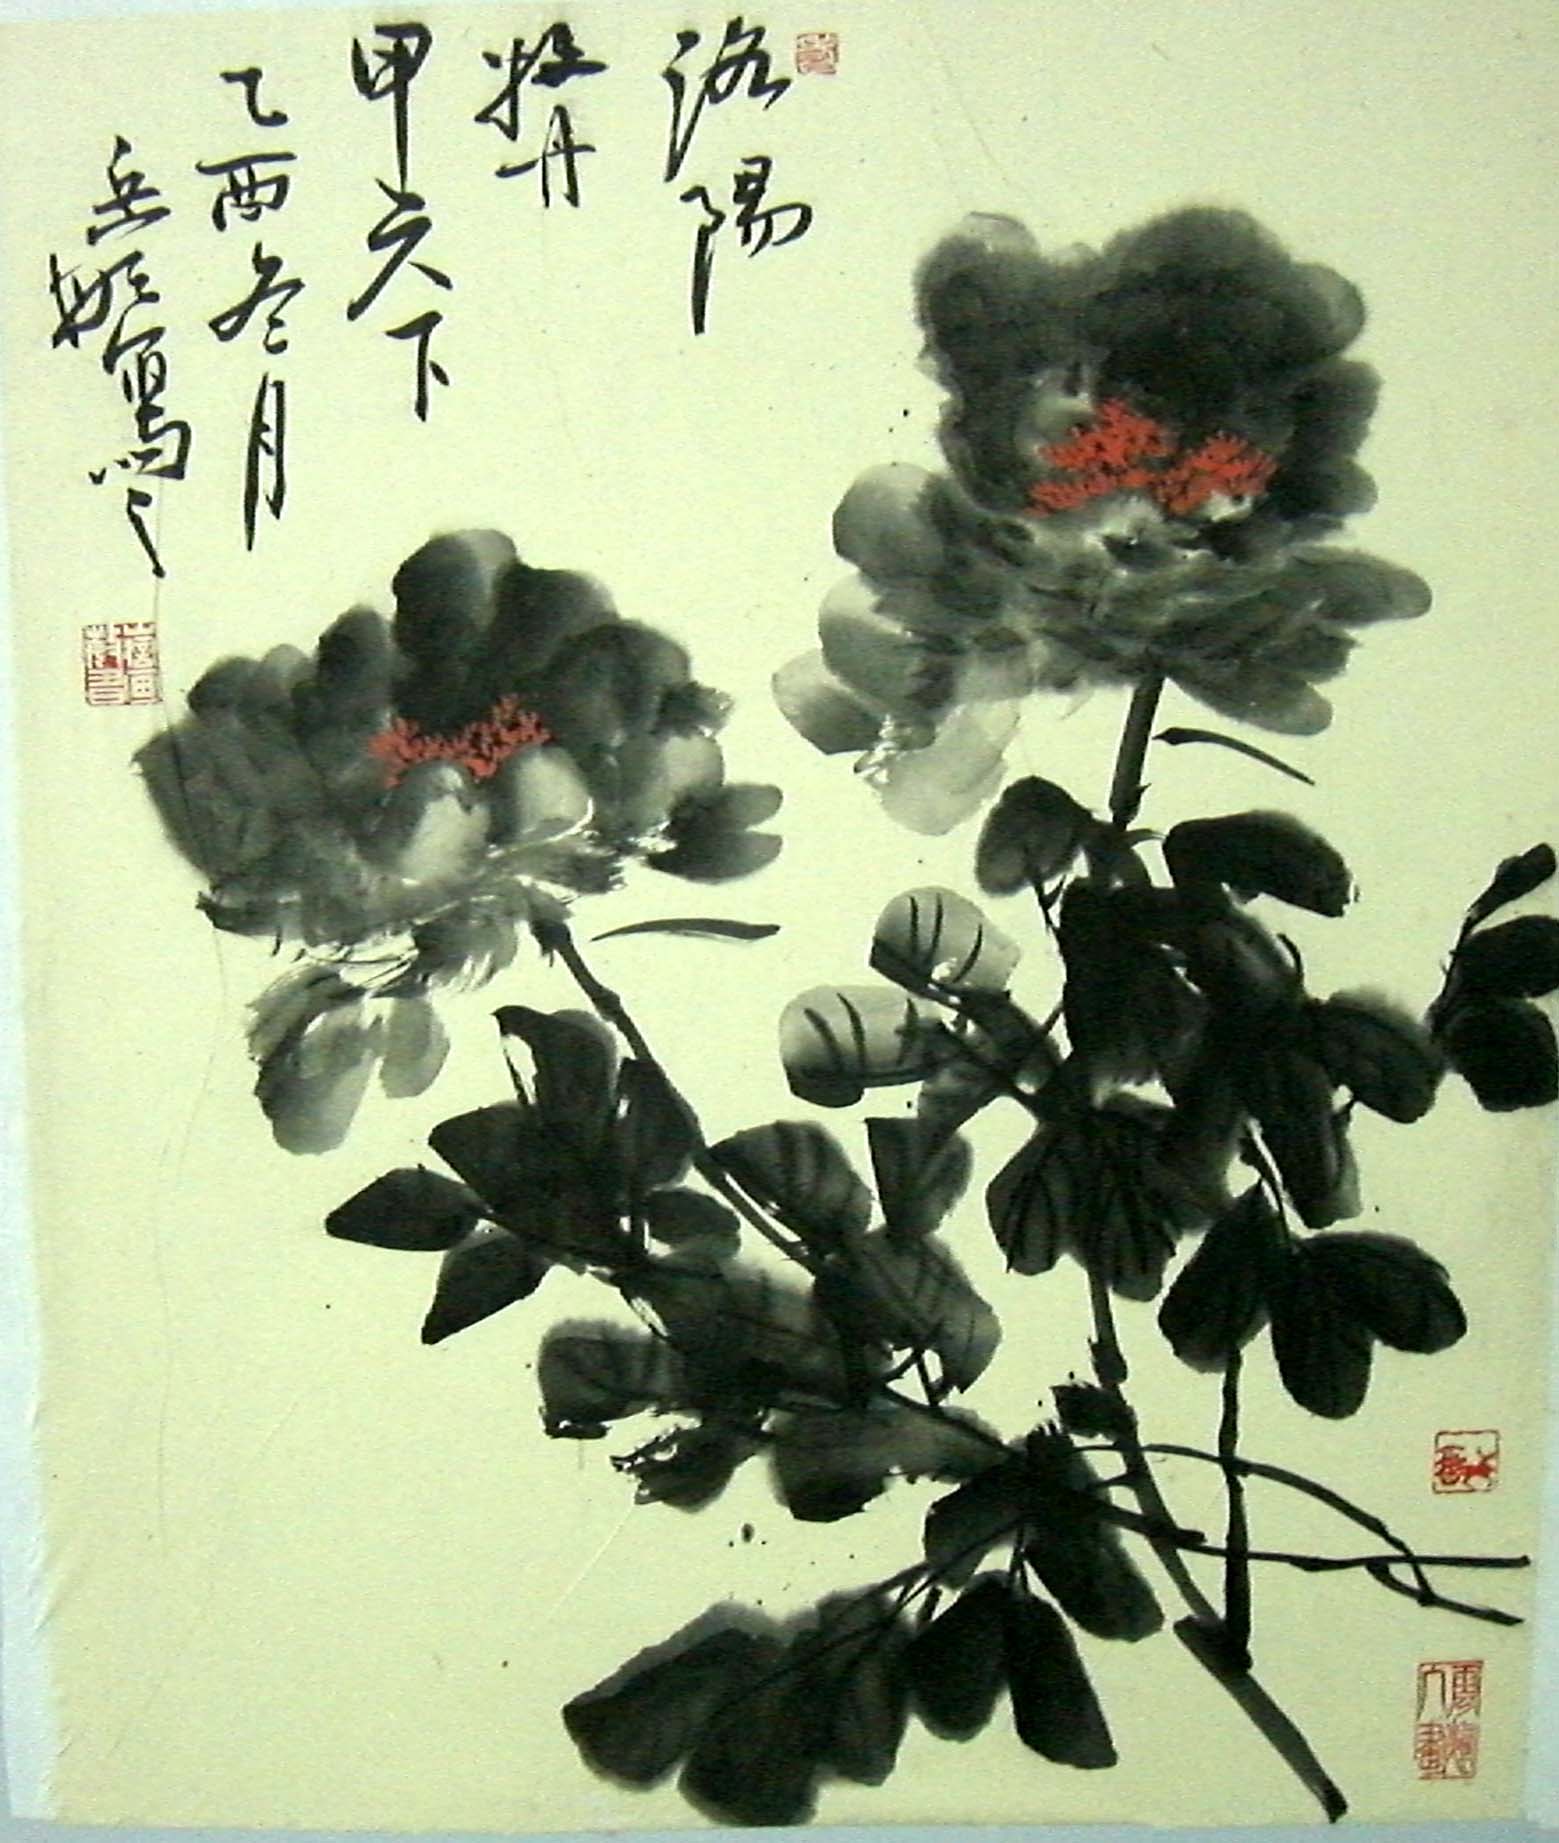 洛陽
牡丹
甲天下
乙酉冬月
岳
寫